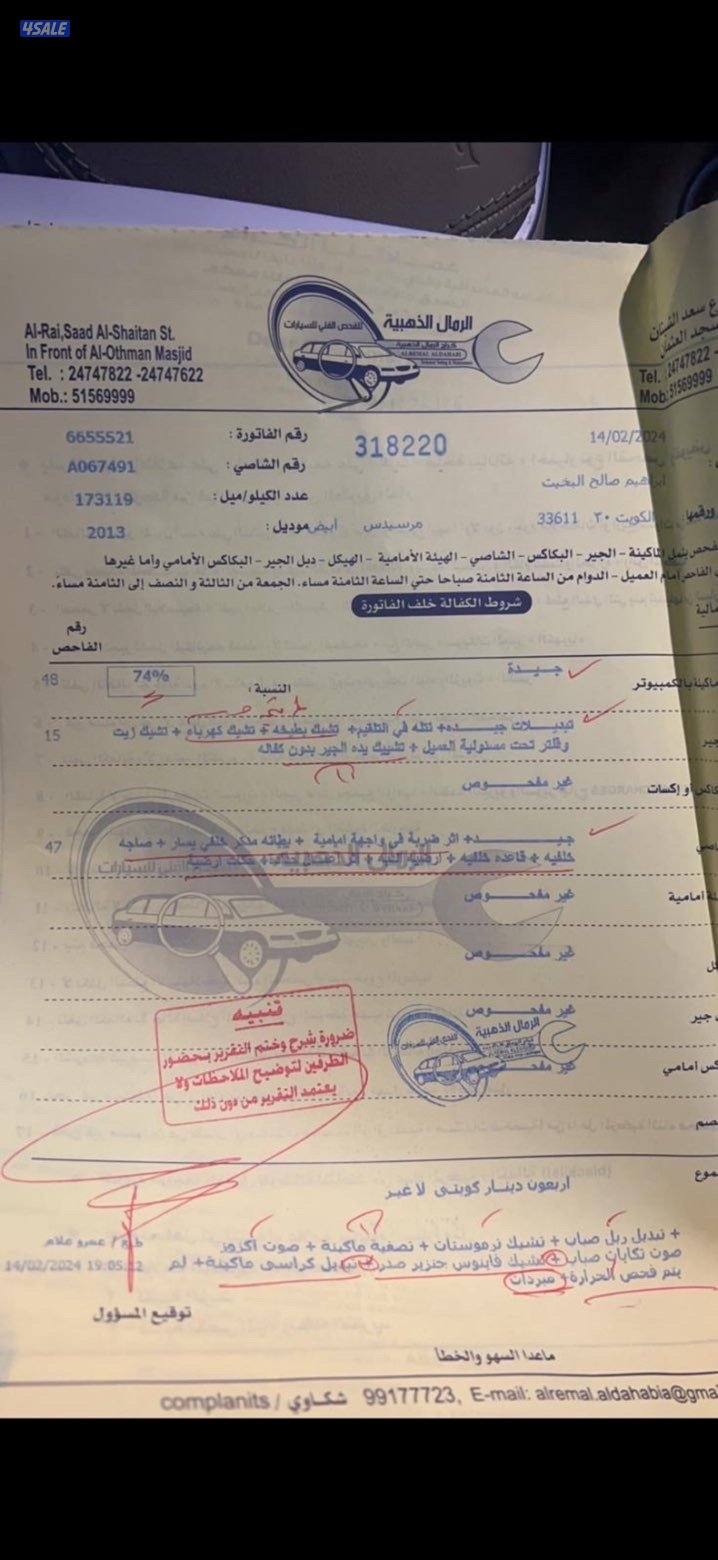 4SALE
Al-Rai,Saad Al-Shaitan St.
In Front of Al-Othman Masjid
Tel. : 24747822 -24747622
Mob.: 51569999
الرمال الذهبية
للفحص الفني للسيارات
كراج الرمال الذهبية
ALREMAL ALDAHABI
ع سعد
Tel. 24747822 -
Mob: 51569999
14/02/2024
318220
رقم الفاتورة : 6655521
ابراهيم صالح البخيت
رقم الشاصي : A067491
عدد الكيلو/ميل : 173119
الكويت ٣٠ 33611
مرسيدس
أبيض
موديل : 2013
ماكينة - الجير - البكاكس - الشاصي - الهيئة الأمامية - الهيكل - دبل الجير - البكاكس الأمامي وأما غيرها
أمام العميل - الدوام من الساعة الثامنة صباحا حتي الساعة الثامنة مساء، الجمعة من الثالثة و النصف إلى الثامنة مساءً.
شروط الكفالة خلف الفاتورة
رقم
الفاحص
ماكينة بالكمبيوتر
جيدة
النسبة : 74%
48
لم يتم
جير
تبديلات جيده+ نتله في التلقيم+ تشيك بطيخه + تشيك كهرباء + تشيك زيت
15
وفلتر تحت مسئولية العميل + تشييك يده الجير بدون كفاله
أو إكسات
غير مفحوص
جيد+ اثر ضربة في واجهة امامية + بطانه مدكر خلفي يسار + صاجه
47
خلفيه + قاعده خلفيه + ارضية
أمامية
غير مفحوص
غير مفحوص
جير
غير مفحوص
أمامي
غير مفحوص
تنبيه
ضرورة شرح وختم التقرير بحضور
الطرفين لتوضيح الملاحظات ولا
يعتمد التقرير من دون ذلك
الرمال الذهبية
اربعون دينار كويتى لا غير
+ تبديل ربل صباب + تشيك ثرموستات + تصفية ماكينة + صوت اكزوز
طبع / عمرو علام
صوت تكايات صباب + تشيك فانوس جنزير صدر + تبديل كراسى ماكينة + لم
14/02/2024 19:05
يتم فحص الحرارة+ مبردات
توقيع المسؤول
ماعدا السهو والخطأ
complanits / شكاوي 99177723, E-mail: alremal.aldahabia@gma